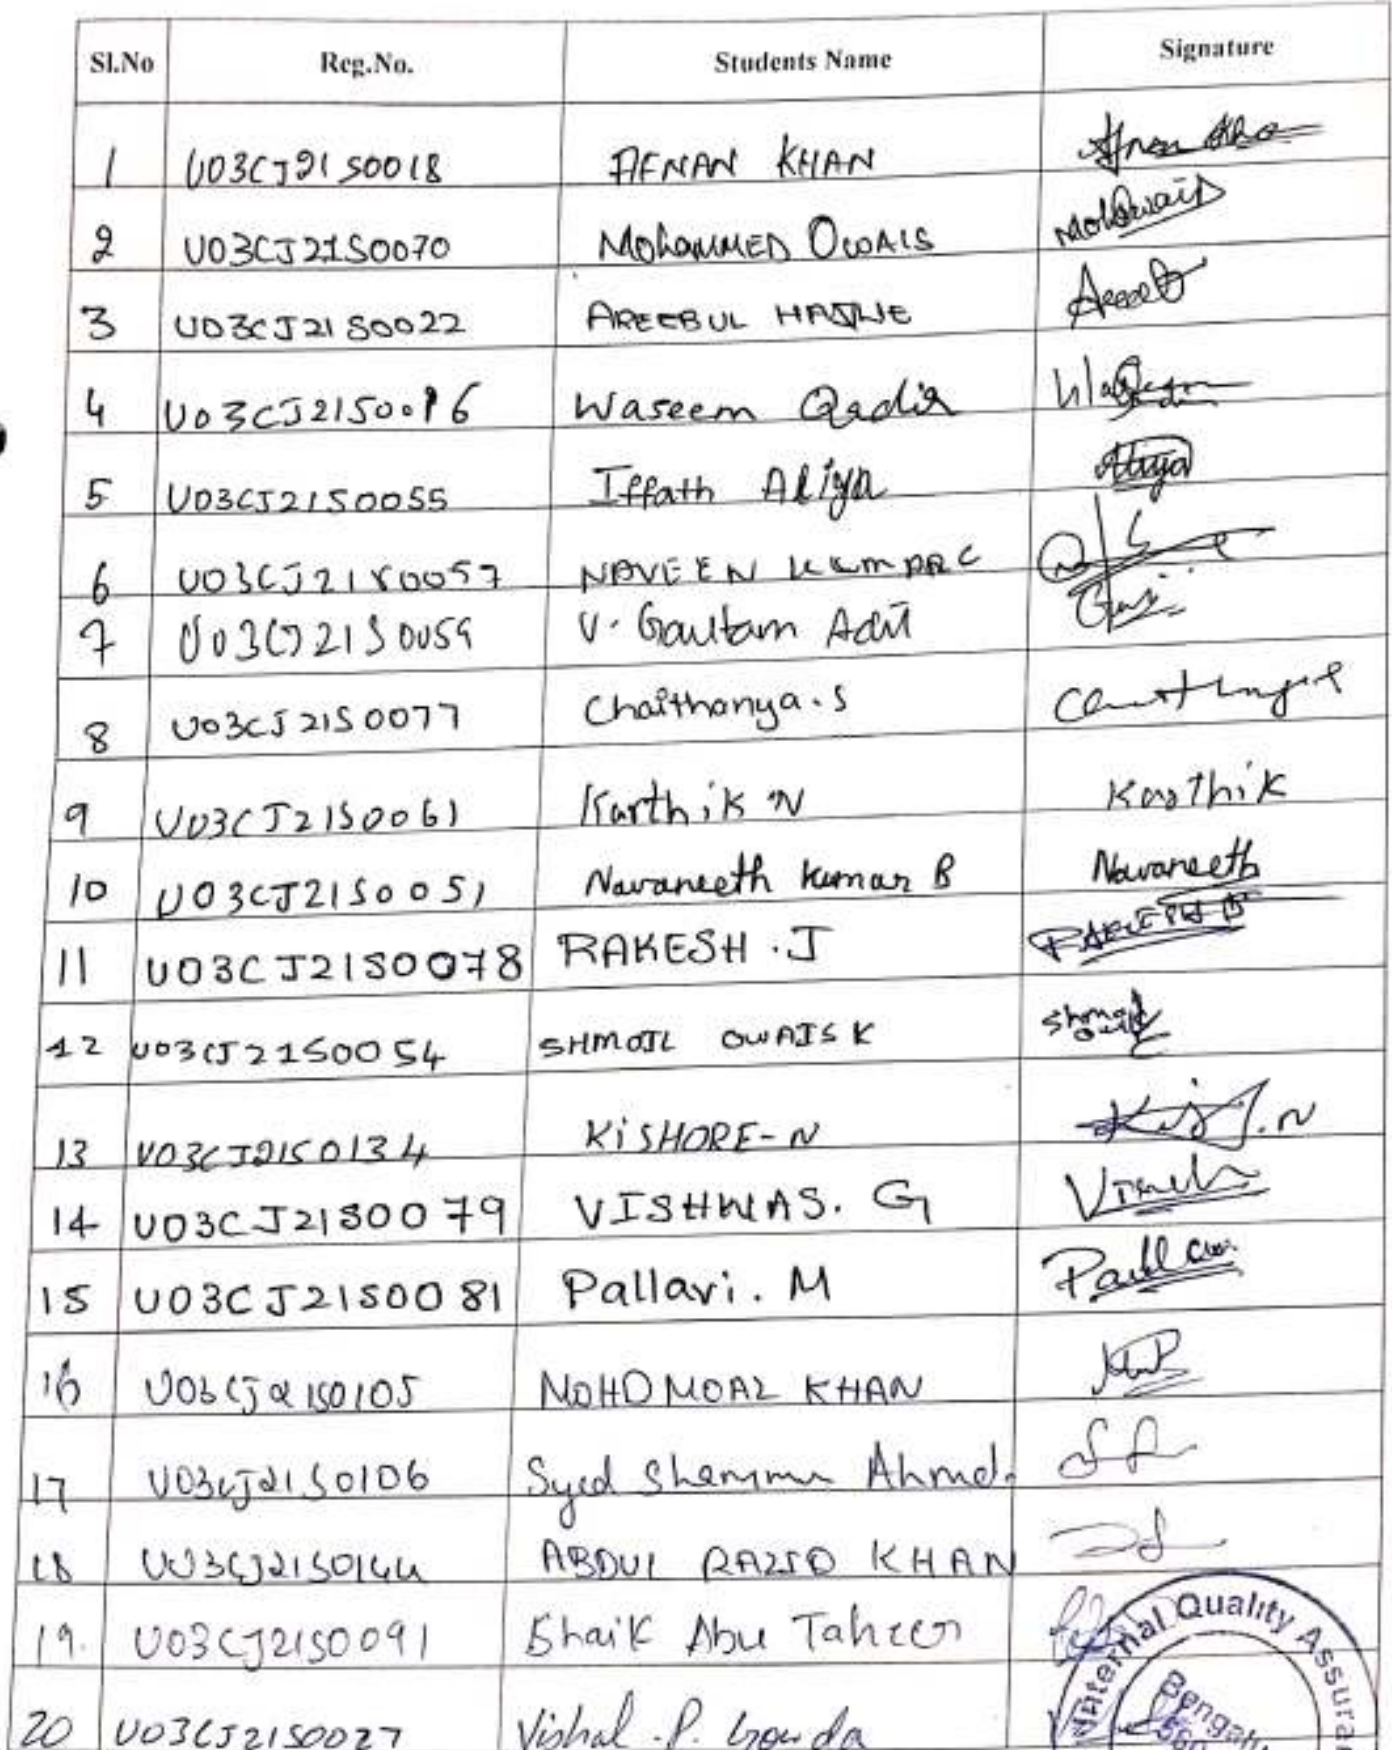 Sl.No Reg.No. Students Name Signature
1 U03CJ21S0018 AFNAN KHAN
2 U03CJ21S0070 MOHAMMED OWAIS
3 U03CJ21S0022 AREEBUL
4 U03CJ21S0016 Waseem Qadir
5 U03CJ21S0055 Iffath Aliya Aliya
6 U03CJ21S0057 NAVEEN KUMAR C
7 U03CJ21S0059 V. Gautam Adit
8 U03CJ21S0077 Chaithanya.S
9 U03CJ21S0061 Karthik N Karthik
10 U03CJ21S0051 Navaneeth Kumar B Navaneeth
11 U03CJ21S0078 RAKESH.J
12 U03CJ21S0054 SHMOIL OWAIS K
13 U03CJ21S0134 KiSHORE-N
14 U03CJ21S0079 VISHWAS. G
15 U03CJ21S0081 Pallari. M
16 U03CJ21S0105 MOHD MOAZ KHAN
17 U03CJ21S0106 Syed Ahmed
18 U03CJ21S0144 ABDUL KHAN
19. U03CJ21S0091 Shaik Abu Taheer
20 U03CJ21S0027 Vishal.P. Gowda
Internal Quality Assura
Bengal